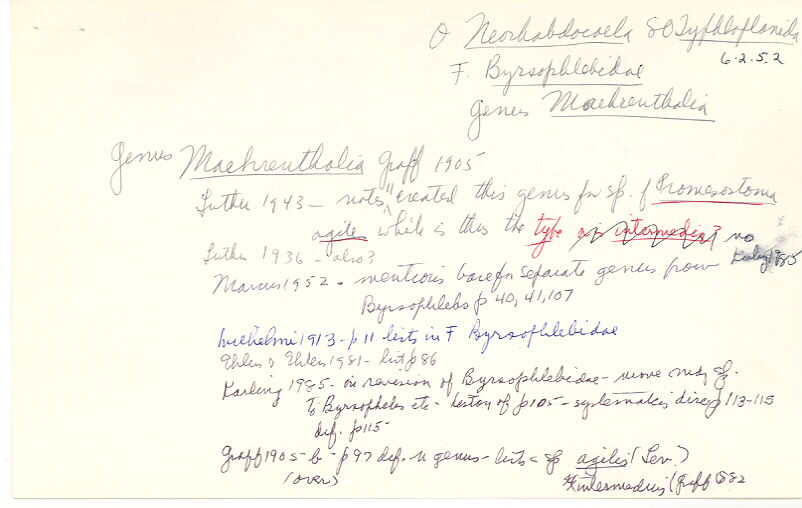 O Neorhabdocoela SO Typhloplanida
6.2.5.2
F. Byrsophlebidae
Genus Maehrenthalia
Genus Maehrenthalia Graff 1905
Luther 1943 - notes "created this genus for sp. of Promesostoma
agile" while is this the type or intermedia? no
Luther 1936 - also? Karling 1985
Marcus 1952 - mentions base for separate genus from
Byrsophlebs p 40, 41, 107
Wilhelmi 1913 - p 11 lists in F Byrsophlebidae
Ehlers & Ehlers 1981 - list p 86
Karling 1985 - in revision of Byrsophlebidae - move many sp.
to Byrsophlebs etc - history of p 105 - systematics discus p 113-115
dif. p 115
Graff 1905-b - p 97 def. n genus - lists = sp agilis (Lev.)
(over) *intermedius (Graff 1882